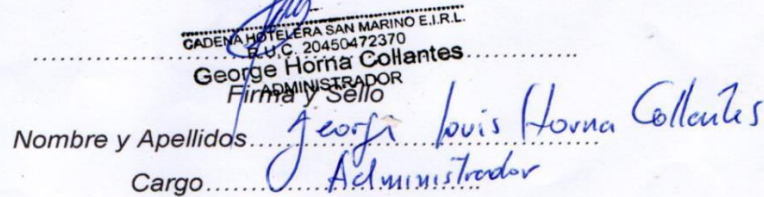 CADENA HOTELERA SAN MARINO E.I.R.L.
R.U.C. 20450472370
George Horna Collantes
ADMINISTRADOR
Firma y Sello
Nombre y Apellidos George Louis Horna Collantes
Cargo Administrador